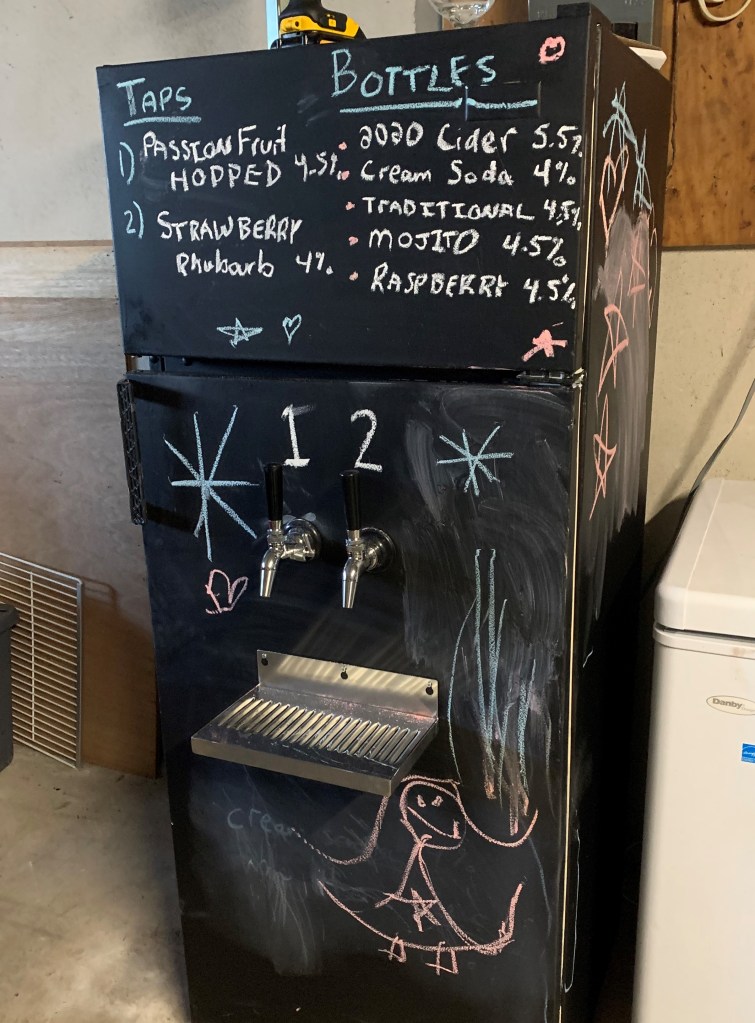 TAPS
1) PASSION Fruit
HOPPED 4.5%
2) STRAWBERRY
Rhubarb 4%
BOTTLES
• 2020 Cider 5.5%
• Cream Soda 4%
• TRADITIONAL 4.5%
• MOJITO 4.5%
• RASPBERRY 4.5%
1 2
Cream
Danby